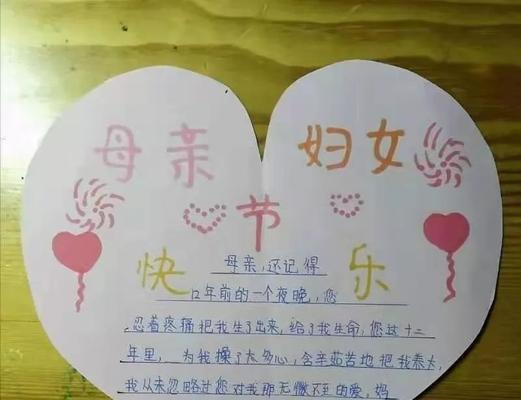 母亲 妇女
节
快 乐
母亲,还记得
12年前的一个夜晚,您
忍着疼痛把我生了出来,给了我生命,您这十二
年里,为我操了太多心,含辛茹苦地把我养大,
我从未忽略过您对我那无微不至的爱,妈